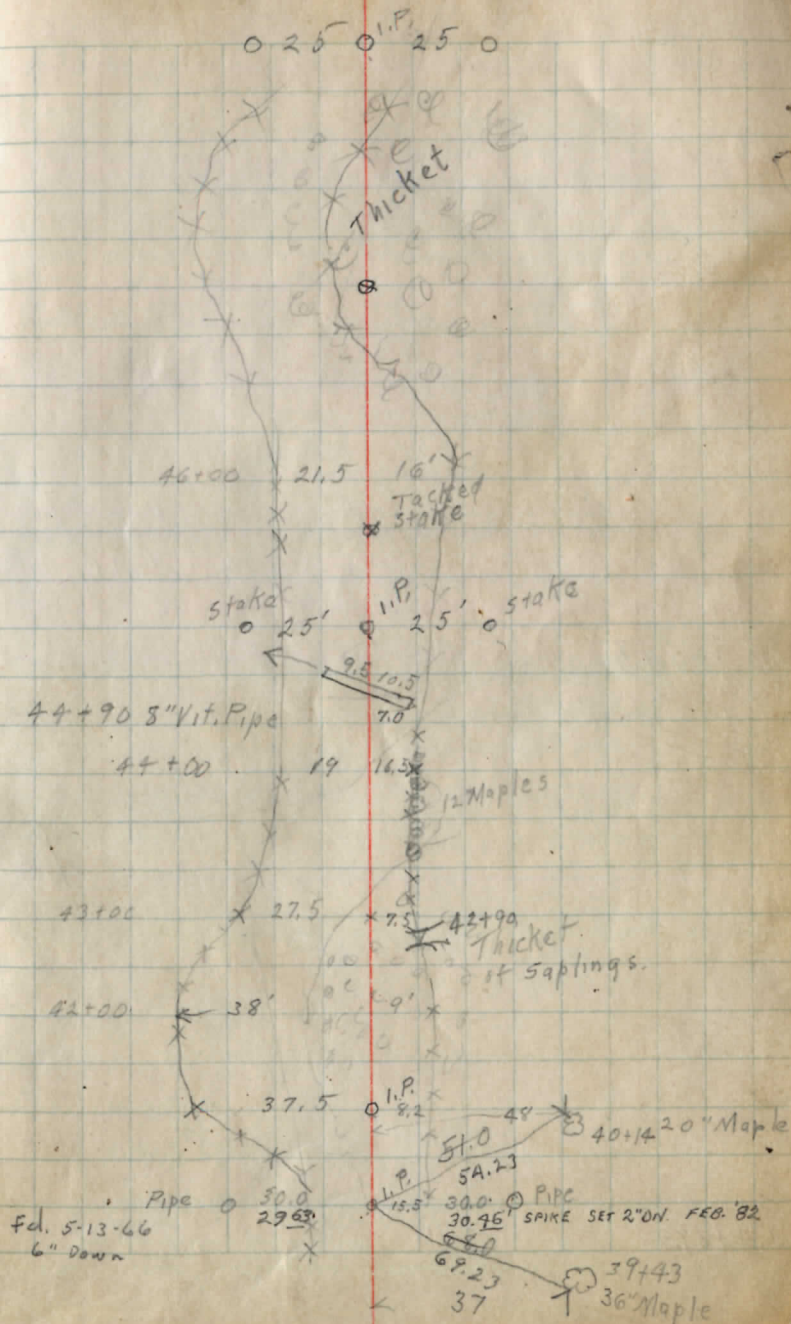 25 I.P. 25
Thicket
46+00 21.5 16'
Tacked
Stake
Stake 25' I.P. 25' Stake
9.5 10.5
7.0
44+90 8" Vit. Pipe
44+00 19 16.5
12 Maples
43+00 27.5 7.5 42+90
Thicket
of Saplings.
42+00 38' 9'
37.5 I.P. 8.2 48
40+14 20" Maple
51.0
54.23
I.P.
Pipe 30.0 15.5 30.0 Pipe
29.63 30.46' SPIKE SET 2" DN. FEB. '82
Fd. 5-13-66
6" Down
68.0
69.23
39+43
37 36" Maple